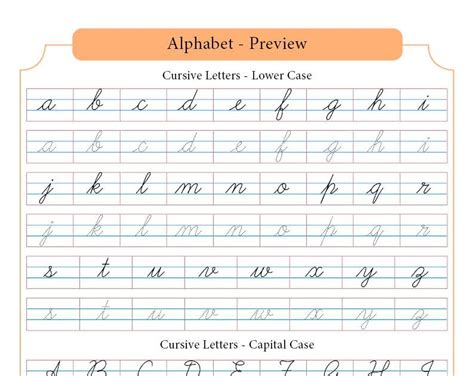 Alphabet - Preview
Cursive Letters - Lower Case
a b c d e f g h i
a b c d e f g h i
j k l m n o p q r
j k l m n o p q r
s t u v w x y z
s t u v w x y z
Cursive Letters - Capital Case
A B C D E F G H I